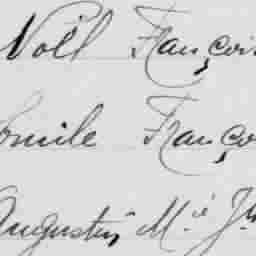 Noël François
Emile François
Augustin M.ie